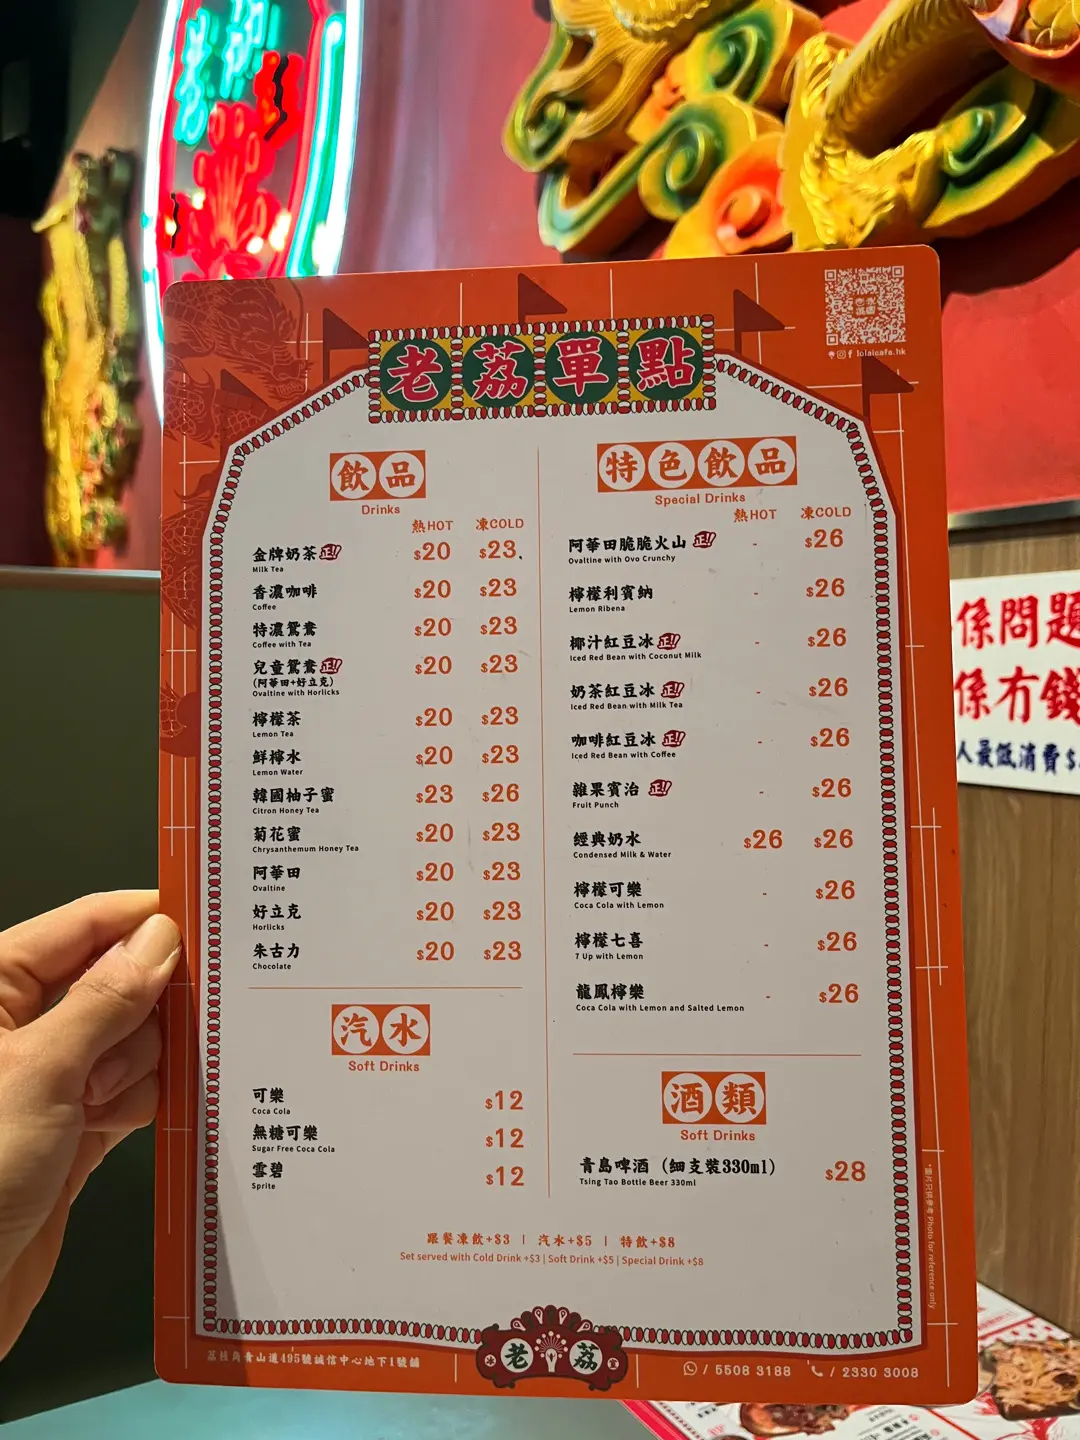 老荔單點
lolaicafe.hk
飲品
Drinks
熱HOT 凍COLD
金牌奶茶 正! $20 $23
Milk Tea
香濃咖啡 $20 $23
Coffee
特濃鴛鴦 $20 $23
Coffee with Tea
兒童鴛鴦 正! $20 $23
(阿華田+好立克)
Ovaltine with Horlicks
檸檬茶 $20 $23
Lemon Tea
鮮檸水 $20 $23
Lemon Water
韓國柚子蜜 $23 $26
Citron Honey Tea
菊花蜜 $20 $23
Chrysanthemum Honey Tea
阿華田 $20 $23
Ovaltine
好立克 $20 $23
Horlicks
朱古力 $20 $23
Chocolate
汽水
Soft Drinks
可樂 $12
Coca Cola
無糖可樂 $12
Sugar Free Coca Cola
雪碧 $12
Sprite
特色飲品
Special Drinks
熱HOT 凍COLD
阿華田脆脆火山 正! - $26
Ovaltine with Ovo Crunchy
檸檬利賓納 - $26
Lemon Ribena
椰汁紅豆冰 正! - $26
Iced Red Bean with Coconut Milk
奶茶紅豆冰 正! - $26
Iced Red Bean with Milk Tea
咖啡紅豆冰 正! - $26
Iced Red Bean with Coffee
雜果賓治 正! - $26
Fruit Punch
經典奶水 $26 $26
Condensed Milk & Water
檸檬可樂 - $26
Coca Cola with Lemon
檸檬七喜 - $26
7 Up with Lemon
龍鳳檸樂 - $26
Coca Cola with Lemon and Salted Lemon
酒類
Soft Drinks
青島啤酒 (細支裝330ml) $28
Tsing Tao Bottle Beer 330ml
跟餐凍飲+$3 | 汽水+$5 | 特飲+$8
Set served with Cold Drink +$3 | Soft Drink +$5 | Special Drink +$8
*圖片只供參考 Photo for reference only
荔枝角青山道495號誠信中心地下1號舖
老荔
/ 5508 3188 / 2330 3008
係問題
係冇錢
人最低消費$